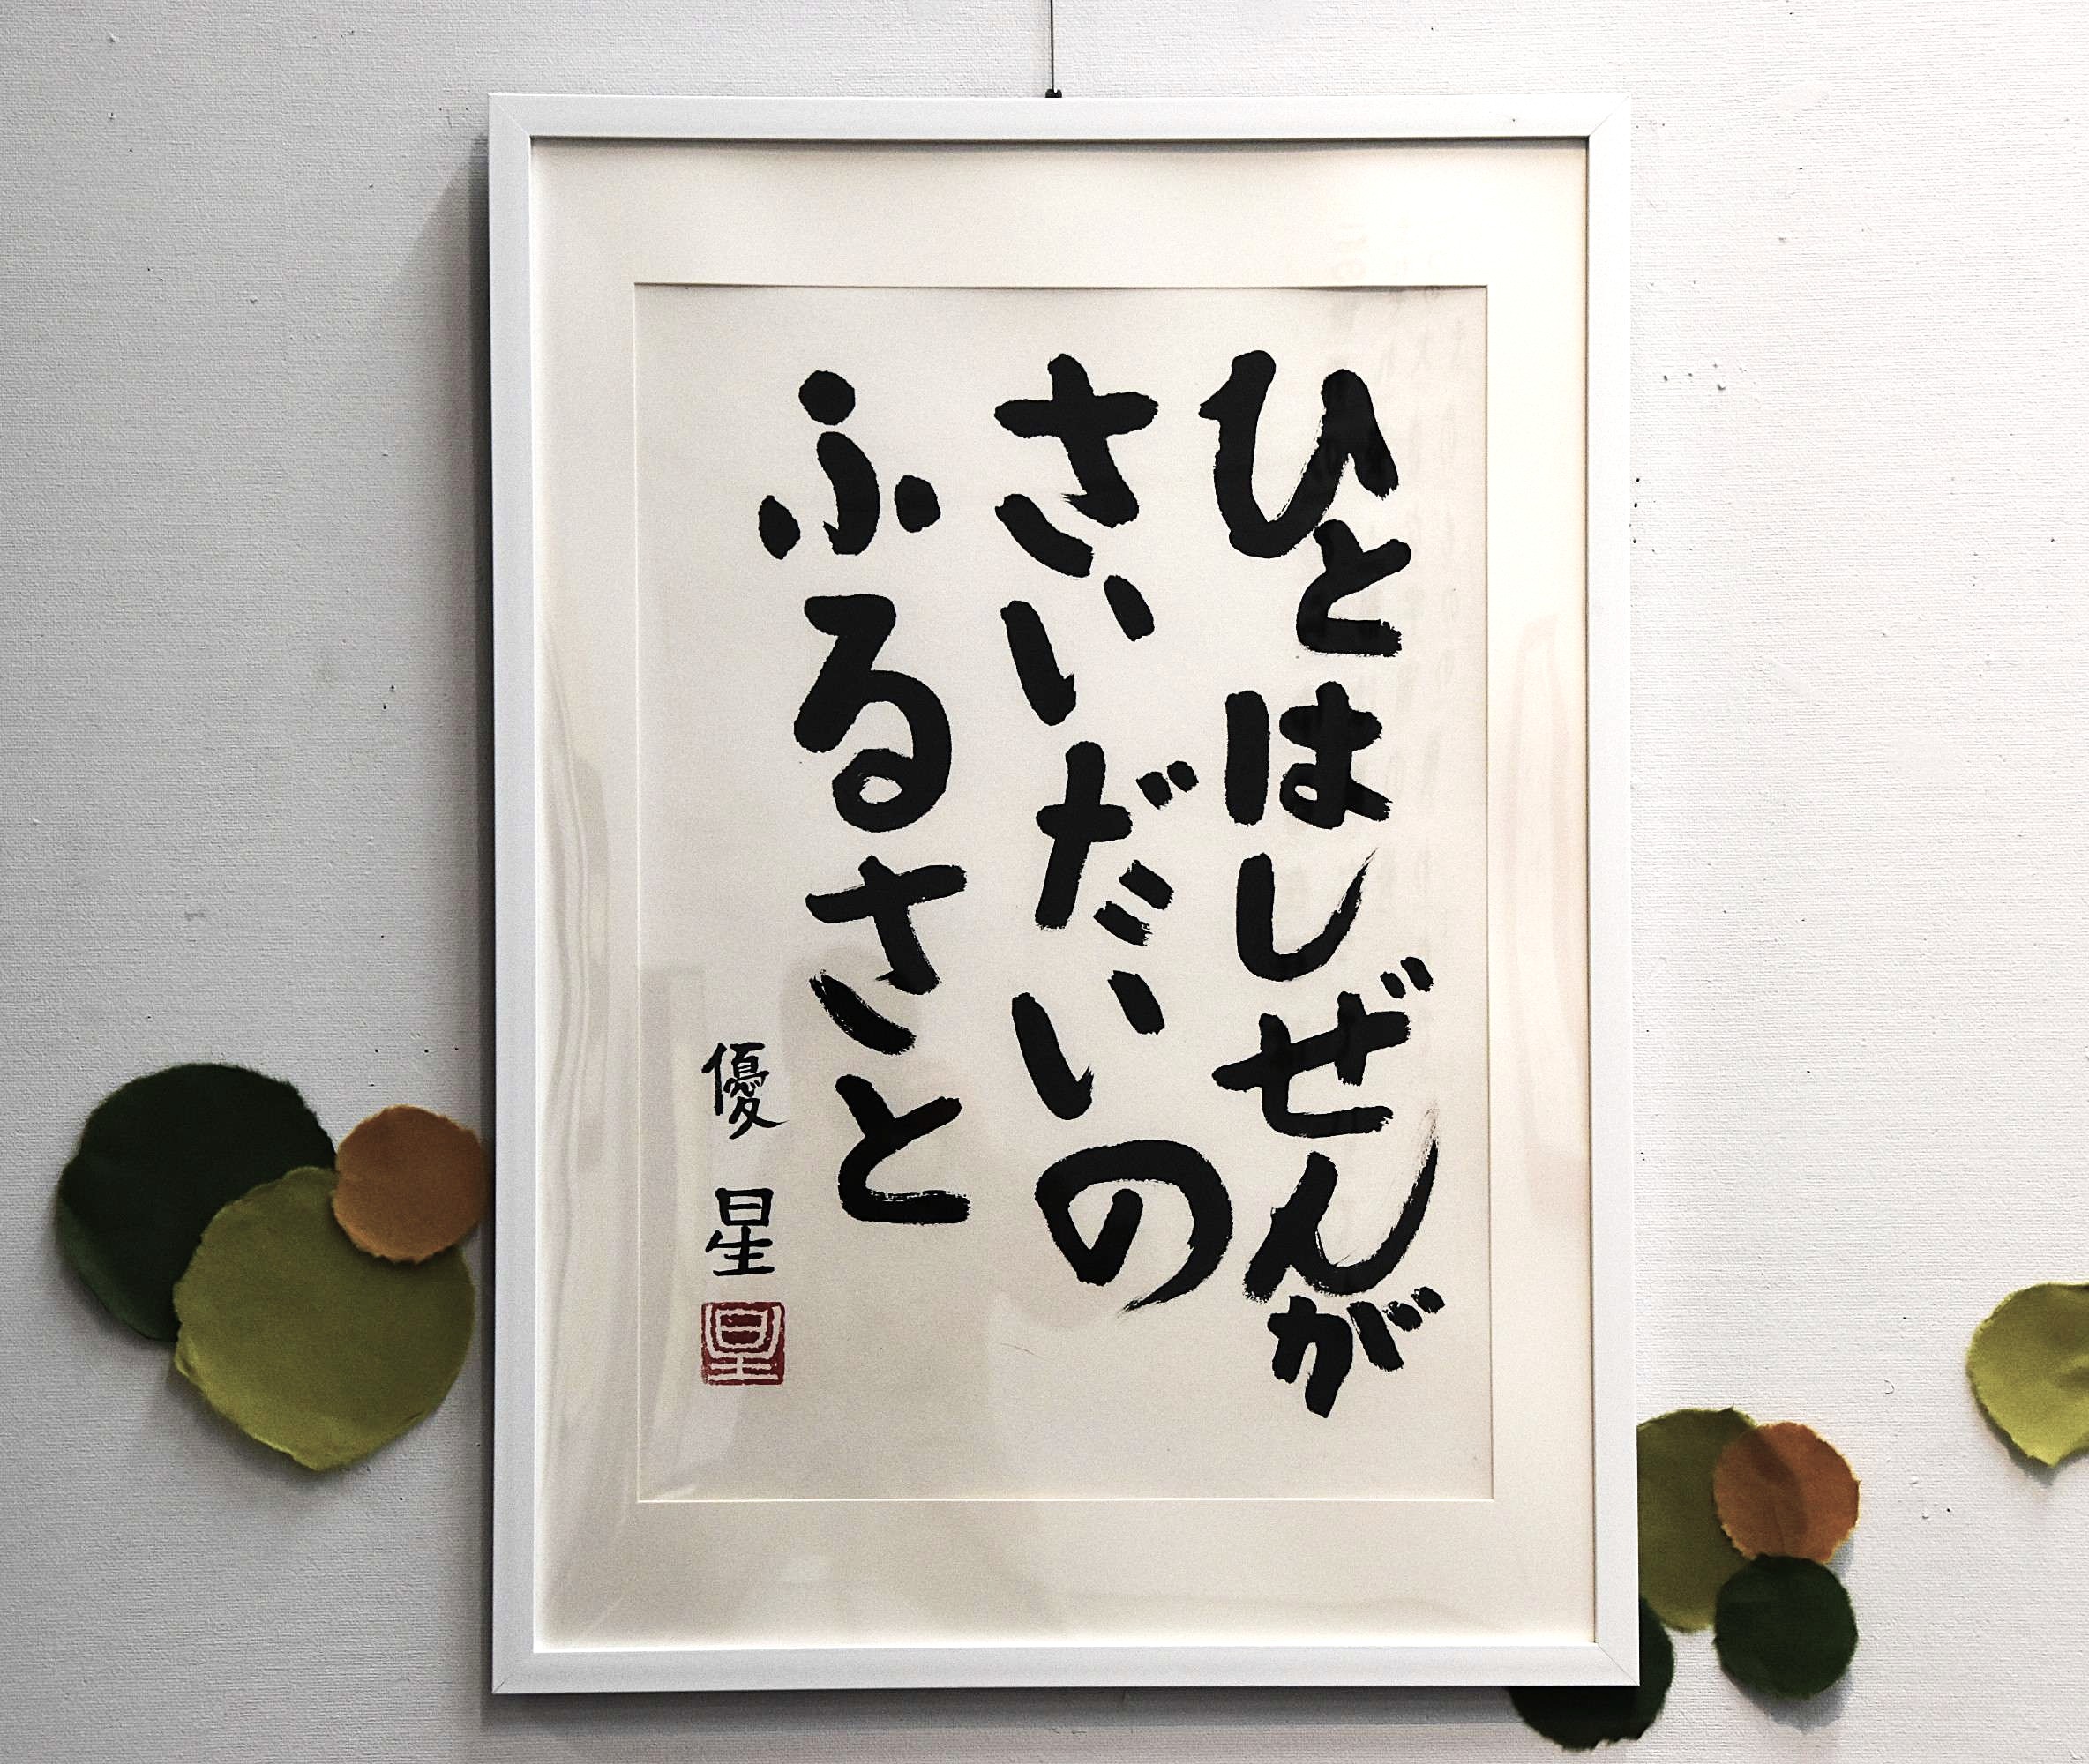 ひとはしぜんが
さいだいの
ふるさと
優星
星